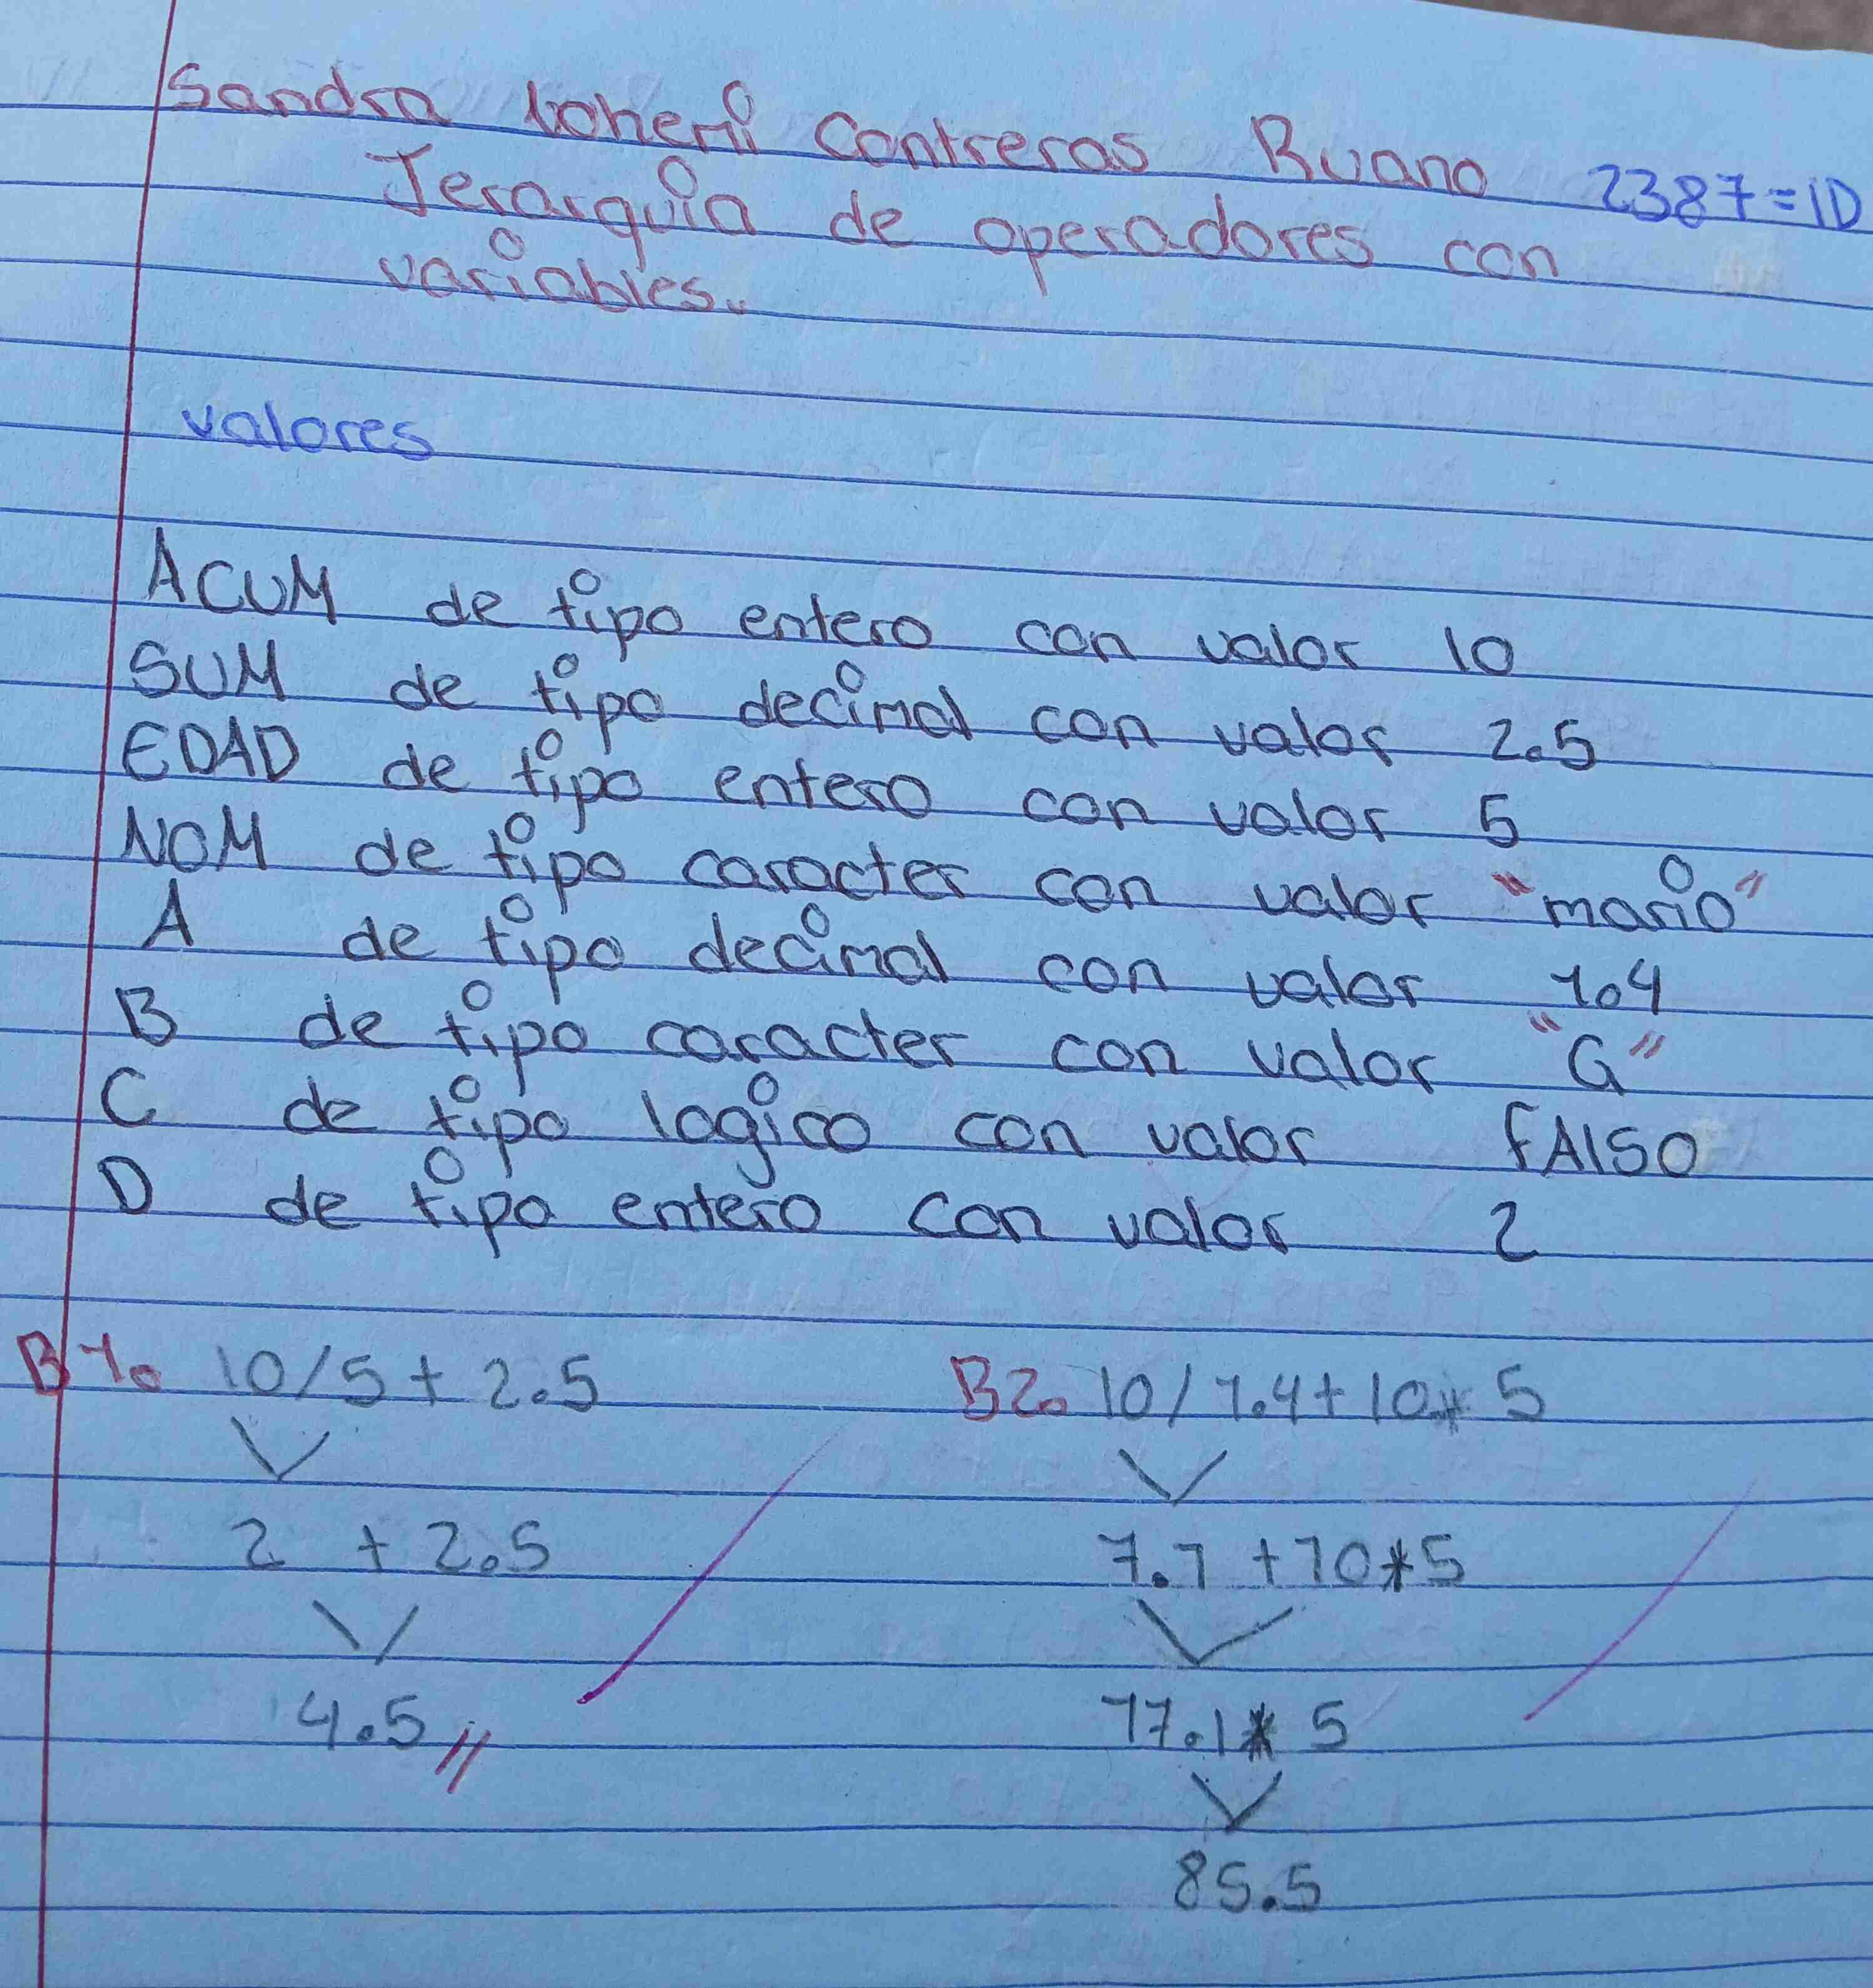 Sandra Loheni Contreras Ruano 2387=ID
Jerarquia de operadores con
variables.
valores
ACUM de tipo entero con valor 10
SUM de tipo decimal con valor 2.5
EDAD de tipo entero con valor 5
NOM de tipo caracter con valor "mario"
A de tipo decimal con valor 1.4
B de tipo caracter con valor "G"
C de tipo logico con valor fAlSO
D de tipo entero con valor 2
B1. 10/5+2.5
2 + 2.5
4.5//
B2. 10/1.4+10*5
7.1 +10*5
17.1* 5
85.5